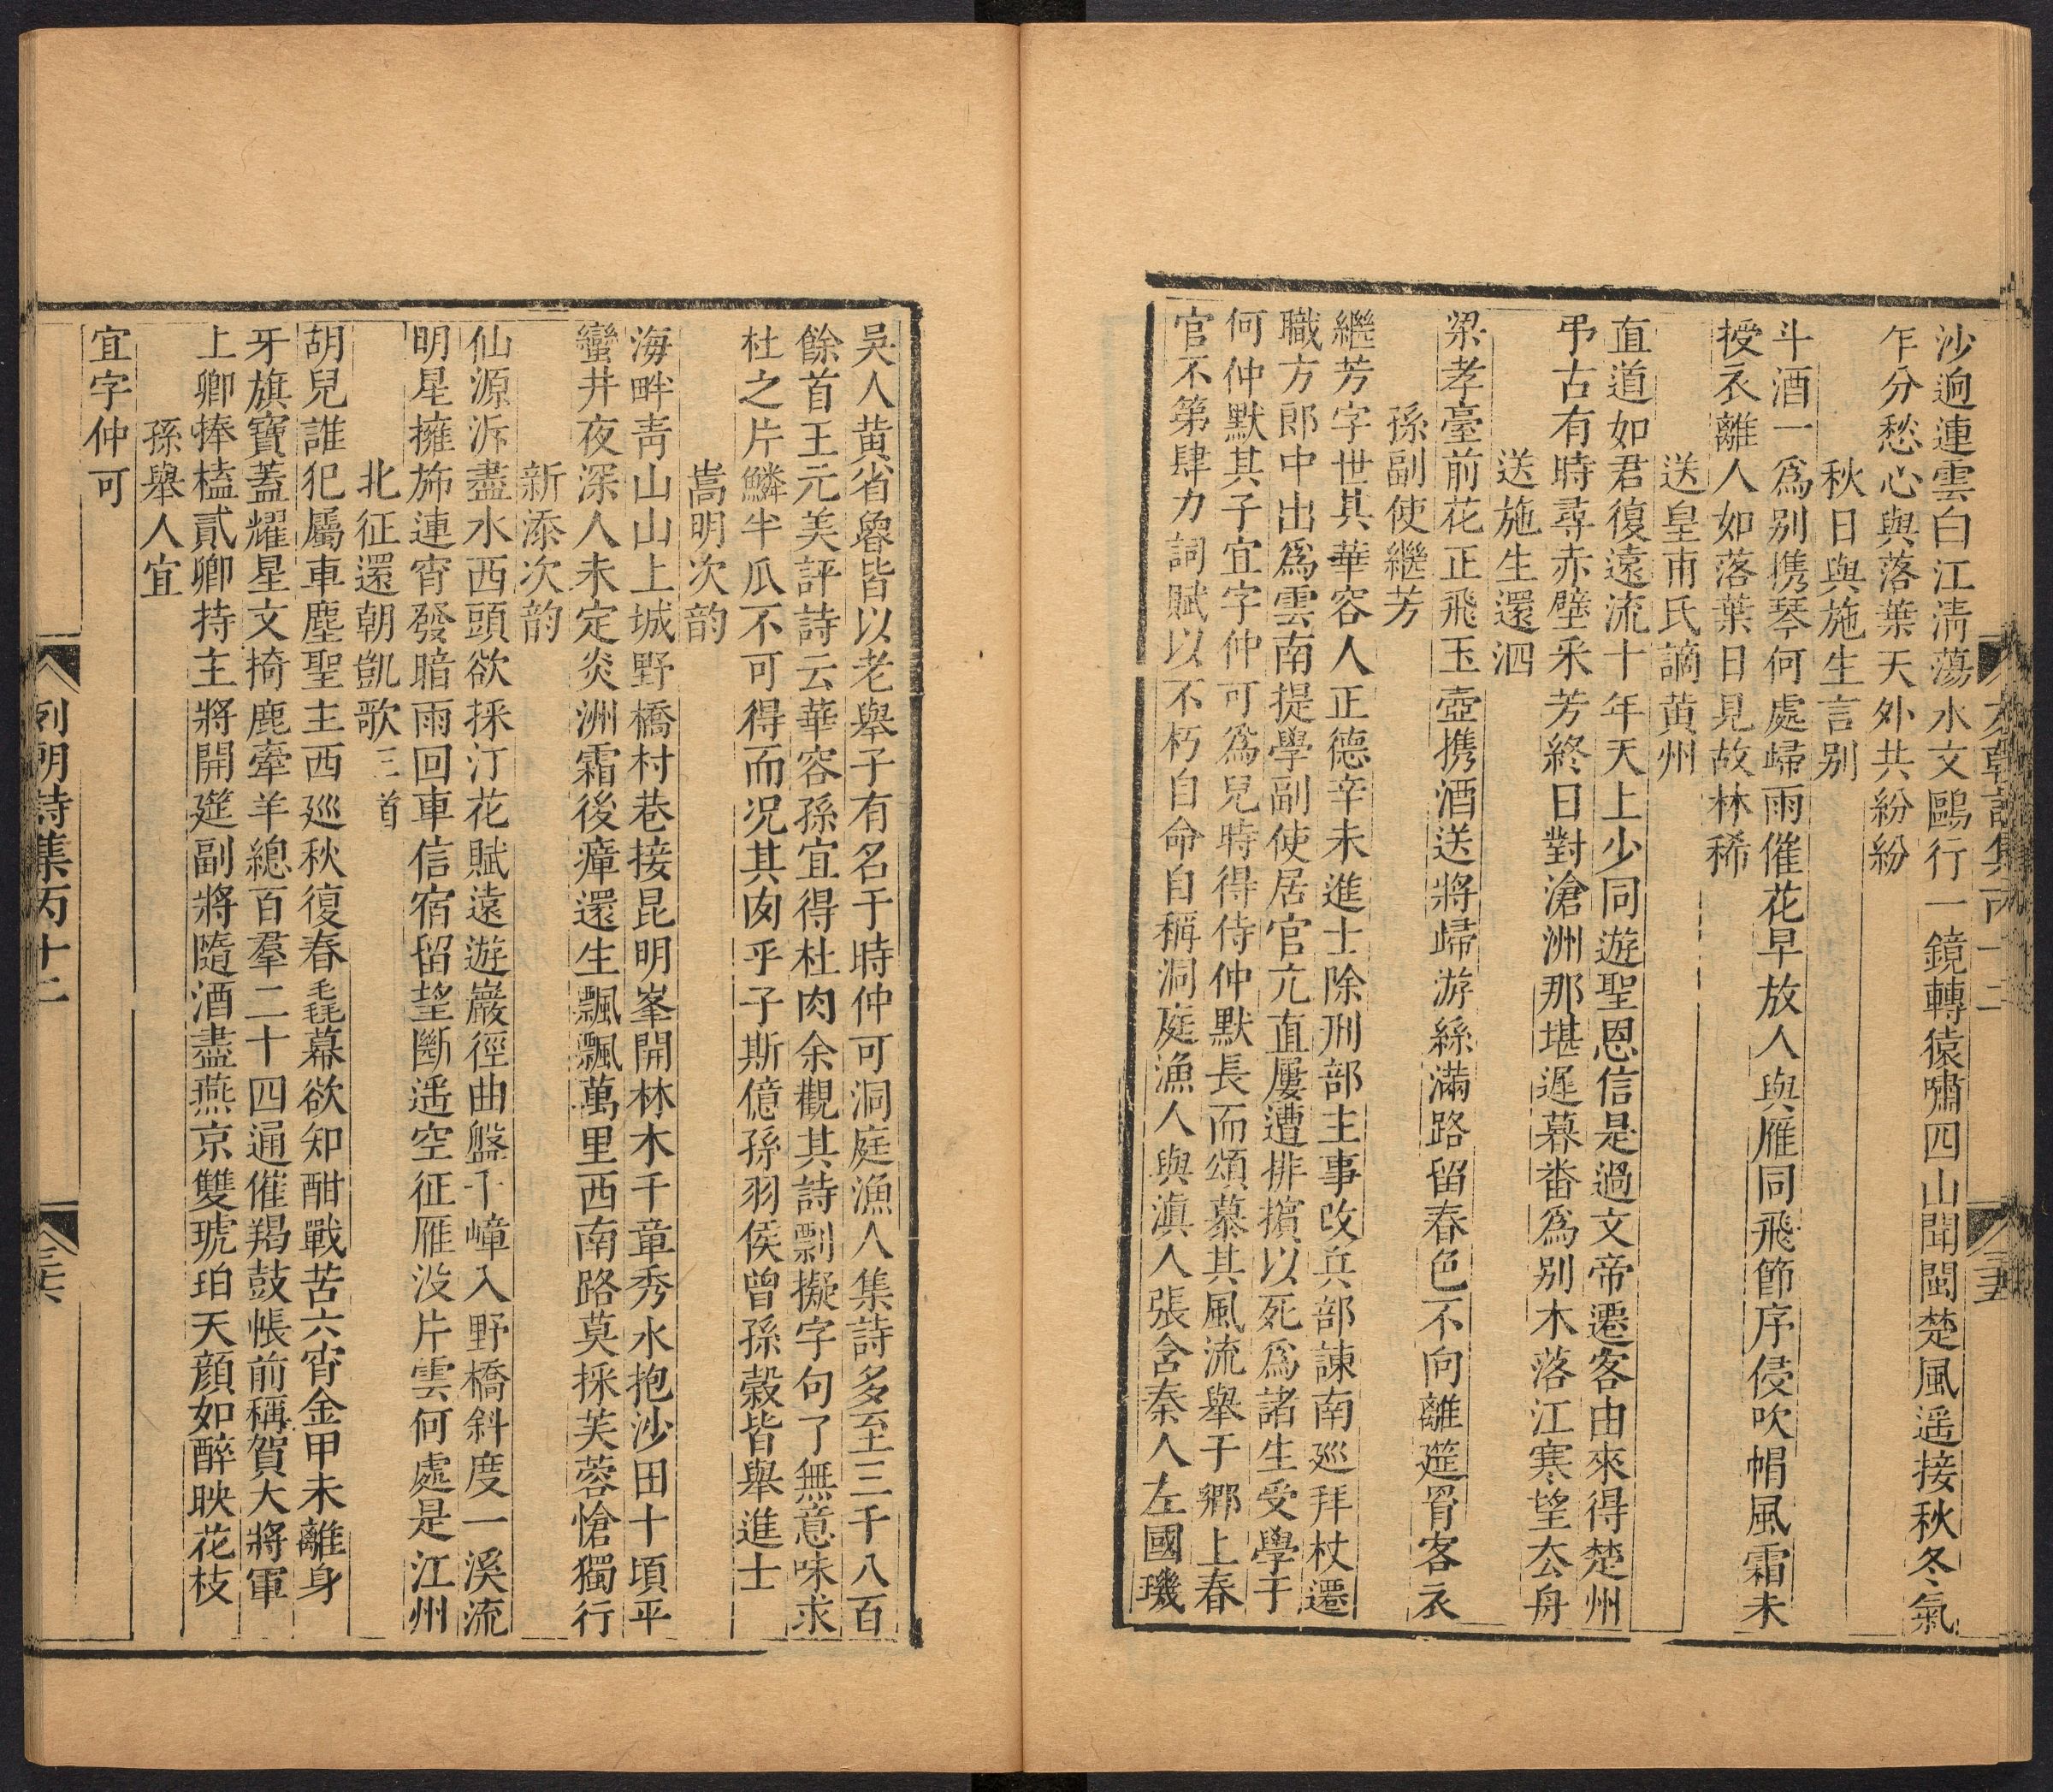 沙逈連雲白江淸蕩水文鷗行一鏡轉猿嘯四山聞閩楚風遥接秋冬氣
乍分愁心與落葉天外共紛紛
秋日與施生言别
斗酒一爲别携琴何處歸雨催花早放人與雁同飛節序侵吹帽風霜未
授衣離人如落葉日見故林稀
送皇甫氏謫黄州
直道如君復遠流十年天上少同遊聖恩信是過文帝遷客由來得楚州
弔古有時尋赤壁采芳終日對滄洲那堪遲暮畨爲别木落江寒望厺舟
送施生還泗
梁孝臺前花正飛玉壺携酒送將歸游絲滿路留春色不向離筵罥客衣
孫副使繼芳
繼芳字世其華容人正德辛未進士除刑部主事改兵部諫南廵拜杖遷
職方郎中出爲雲南提學副使居官亢直屢遭排擯以死爲諸生受學于
何仲默其子宜字仲可爲兒時得侍仲默長而頌慕其風流舉于鄉上春
官不第肆力詞賦以不朽自命自稱洞庭漁人與滇人張含秦人左國璣
吳人黄省魯皆以老舉子有名于時仲可洞庭漁人集詩多至三千八百
餘首王元美評詩云華容孫宜得杜肉余觀其詩剽擬字句了無意味求
杜之片鱗半瓜不可得而况其肉乎子斯億孫羽侯曾孫榖皆舉進士
嵩明次韵
海畔靑山山上城野橋村巷接昆明峯開林木千章秀水抱沙田十頃平
蠻井夜深人未定炎洲霜後瘴還生飄飄萬里西南路莫採芙蓉愴獨行
新添次韵
仙源泝盡水西頭欲採汀花賦遠遊巖徑曲盤千嶂入野橋斜度一溪流
明星擁斾連宵發暗雨回車信宿留望斷遥空征雁没片雲何處是江州
北征還朝凱歌三首
胡兒誰犯屬車塵聖主西廵秋復春毳幕欲知酣戰苦六宵金甲未離身
牙旗寶蓋耀星文掎鹿牽羊總百羣二十四通催羯鼓帳前稱賀大將軍
上卿捧榼貳卿持主將開筵副將隨酒盡燕京雙琥珀天顔如醉映花枝
孫舉人宜
宜字仲可
列朝詩集丙十二
三六